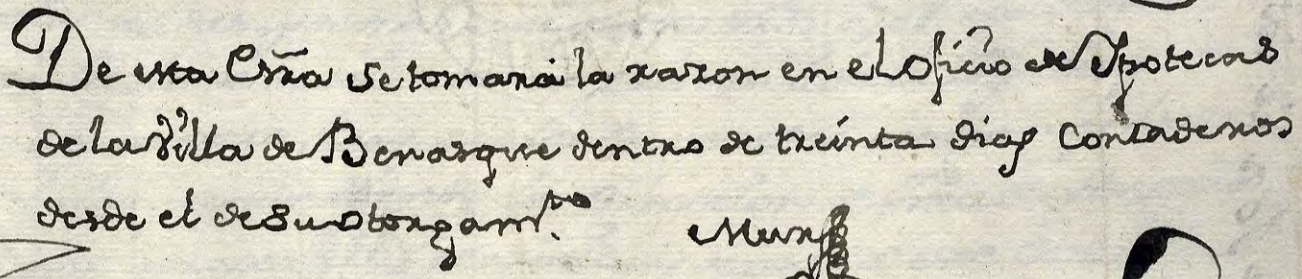 De esta Essrã se tomará la razon en el Oficio de Ipotecas
de la Villa de Benasque dentro de treinta dias contaderos
desde el de su otorgam.to
Mur